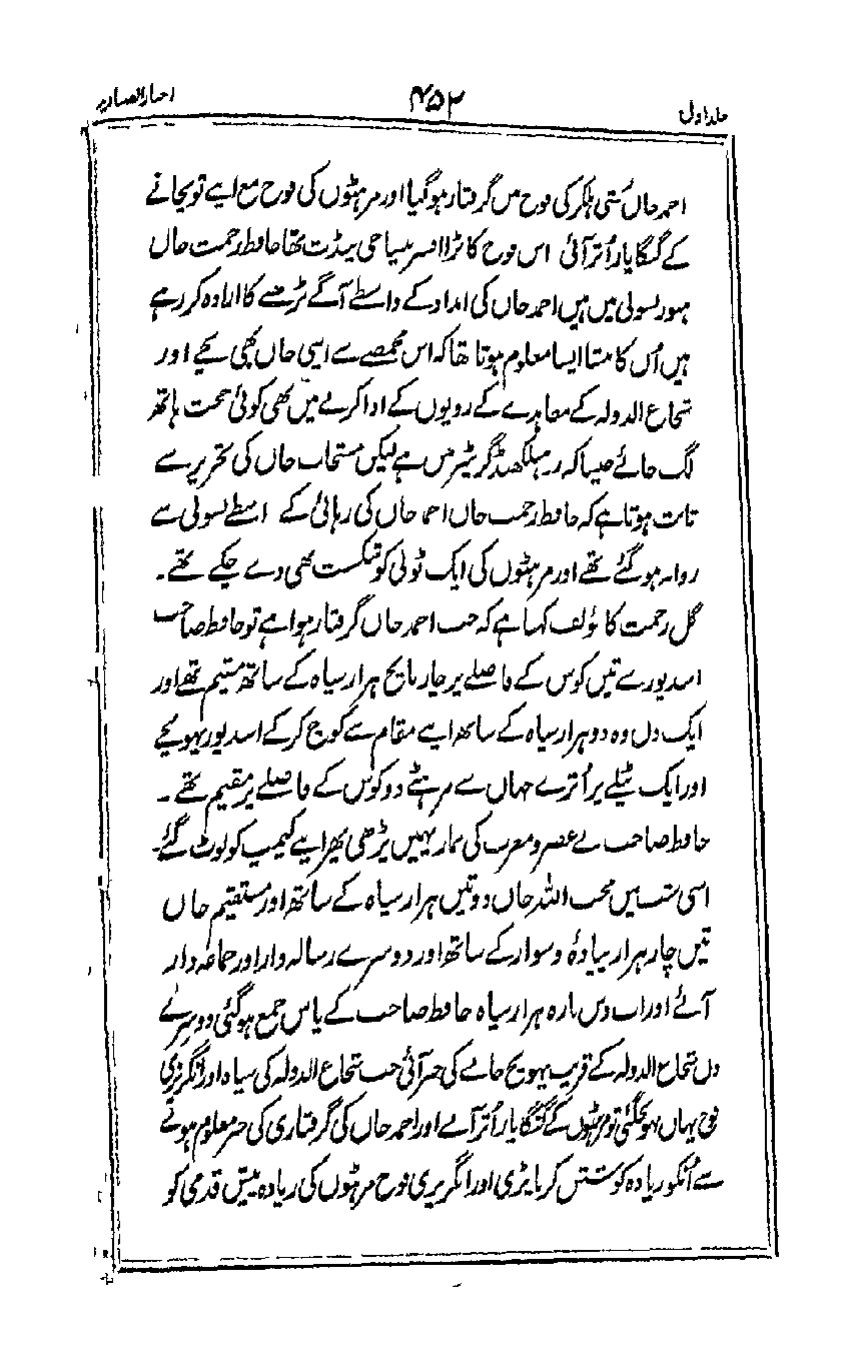 جلد اول ۴۵۲ اخبار الصنادید
احمد خاں بخشی ہلکر کی فوج میں گرفتار ہوگیا اور مرہٹوں کی فوج مع اپنے توپخانے
کے گنگا پار اُتر آئی اس فوج کا بڑا افسر پنڈت تھا حافظ رحمت خاں
ہنوز بسولی میں ہیں احمد خاں کی امداد کے واسطے آگے بڑھنے کا ارادہ کر رہے
ہیں اُن کا منشا ایسا معلوم ہوتا تھا کہ اس مخمصے سے اپنی جاں بھی بچے اور
شجاع الدولہ کے معاہدے کے روپیوں کے ادا کرنے میں بھی کوئی حجت ہاتھ
لگ جائے جیسا کہ رہیلکھنڈ گزیٹیر میں ہے لیکن مستجاب خاں کی تحریر سے
ثابت ہوتا ہے کہ حافظ رحمت خاں احمد خاں کی رہائی کے اسطے بسولی سے
روانہ ہو گئے تھے اور مرہٹوں کی ایک ٹولی کو شکست بھی دے چکے تھے۔
گل رحمت کا مؤلف کہتا ہے کہ جب احمد خاں گرفتار ہوا ہے تو حافظ صاحب
اسد پور سے تین کوس کے فاصلے پر چار پانچ ہزار سپاہ کے ساتھ مقیم تھے اور
ایک دن وہ دو ہزار سپاہ کے ساتھ اپنے مقام سے کوچ کرکے اسد پور پہونچے
اور ایک ٹیلے پر اُترے جہاں سے مرہٹے دو کوس کے فاصلے پر مقیم تھے۔
حافظ صاحب نے عصر و مغرب کی نماز یہیں پڑھی پھر اپنے کیمپ کو لوٹ گئے۔
اسی شب میں محب اللہ خاں دو تین ہزار سپاہ کے ساتھ اور مستقیم خاں
تین چار ہزار پیادہ و سوار کے ساتھ اور دوسرے رسالہ دار اور جماعہ دار
آئے اور اب دس بارہ ہزار سپاہ حافظ صاحب کے پاس جمع ہو گئی دوسرے
دن شجاع الدولہ کے قریب پہونچ جانے کی خبر آئی جب شجاع الدولہ کی سپاہ اور انگریزی
فوج یہاں پہونچگئی تو مرہٹوں کے گنگا پار اُتر آنے اور احمد خاں کی گرفتاری کی خبر معلوم ہونے
سے اُنکو زیادہ کوشش کرنا پڑی اور انگریزی فوج مرہٹوں کی زیادہ پیش قدمی کو